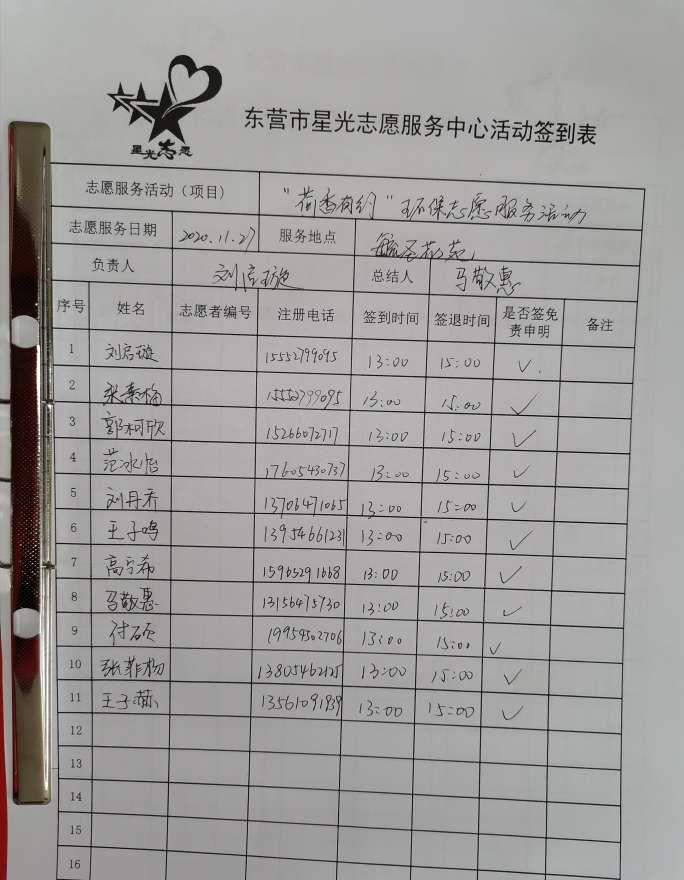 星光志愿
东营市星光志愿服务中心活动签到表
志愿服务活动（项目） “荷香有约”环保志愿服务活动
志愿服务日期 2020.11.27 服务地点
负责人 刘启璇 总结人 马敬惠
序号 姓名 志愿者编号 注册电话 签到时间 签退时间 是否签免责申明 备注
1 刘启璇 15552799095 13:00 15:00 ✓
2 15552799095 13:00 15:00 ✓
3 郭柯欣 15266072717 13:00 15:00 ✓
4 范冰怡 17605430737 13:00 15:00 ✓
5 刘丹乔 13706471065 13:00 15:00 ✓
6 王子鸣 13954661231 13:00 15:00 ✓
7 高宁希 15965291668 13:00 15:00 ✓
8 马敬惠 13156475730 13:00 15:00 ✓
9 付硕 19954502706 13:00 15:00 ✓
10 张菲杨 13805462125 13:00 15:00 ✓
11 王子 13561091939 13:00 15:00 ✓
12
13
14
15
16